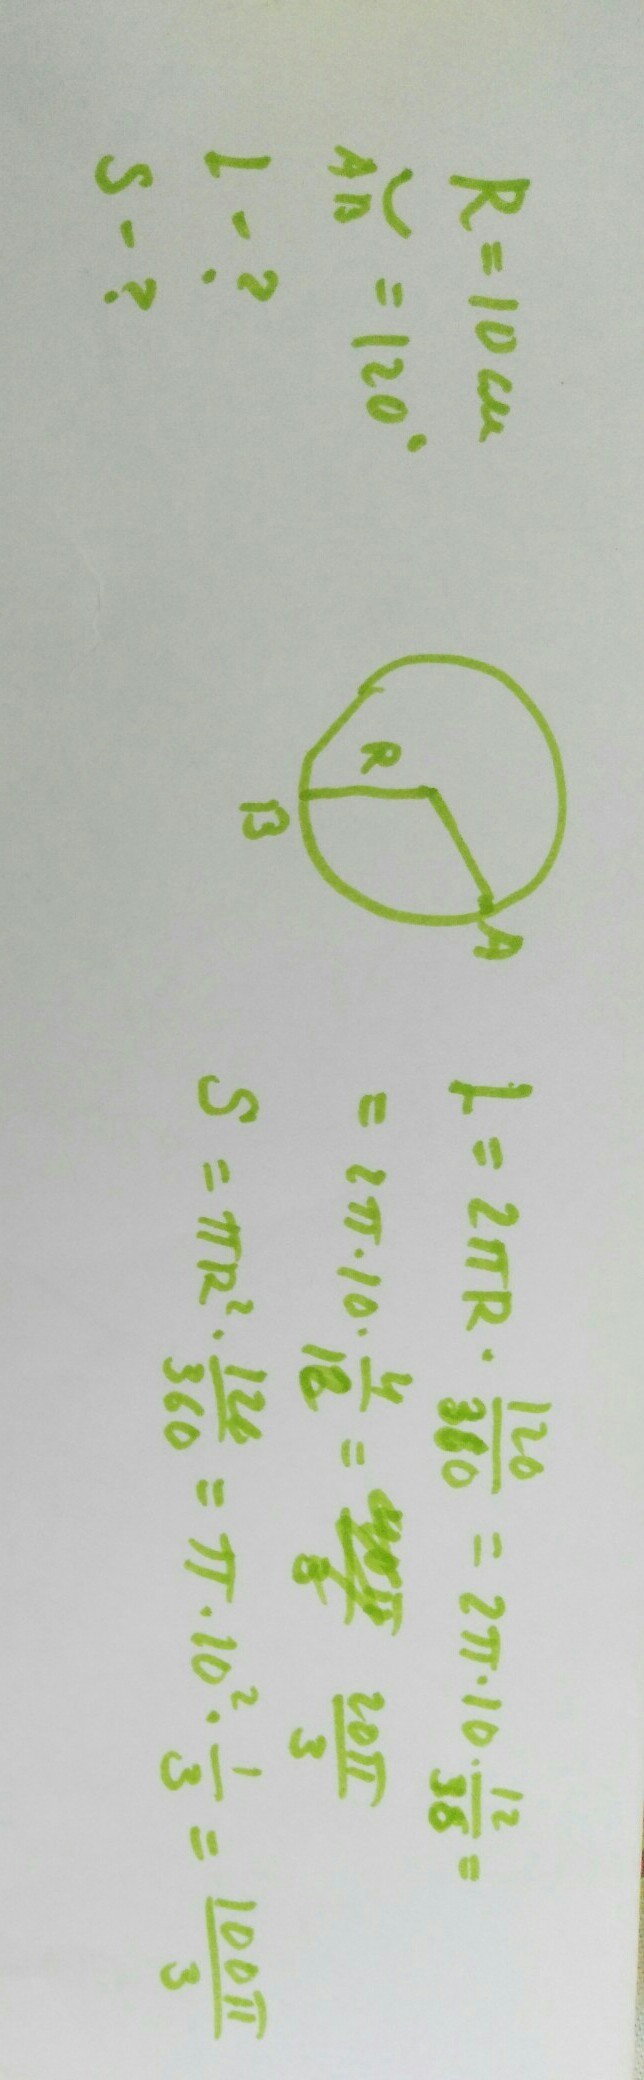 R = 10 см
AB = 120°
L - ?
S - ?
R
A
B
L = 2πR · 120/360 = 2π · 10 · 12/36 =
= 2π · 10 · 4/12 = 20π/3
S = πR² · 120/360 = π · 10² · 1/3 = 100π/3